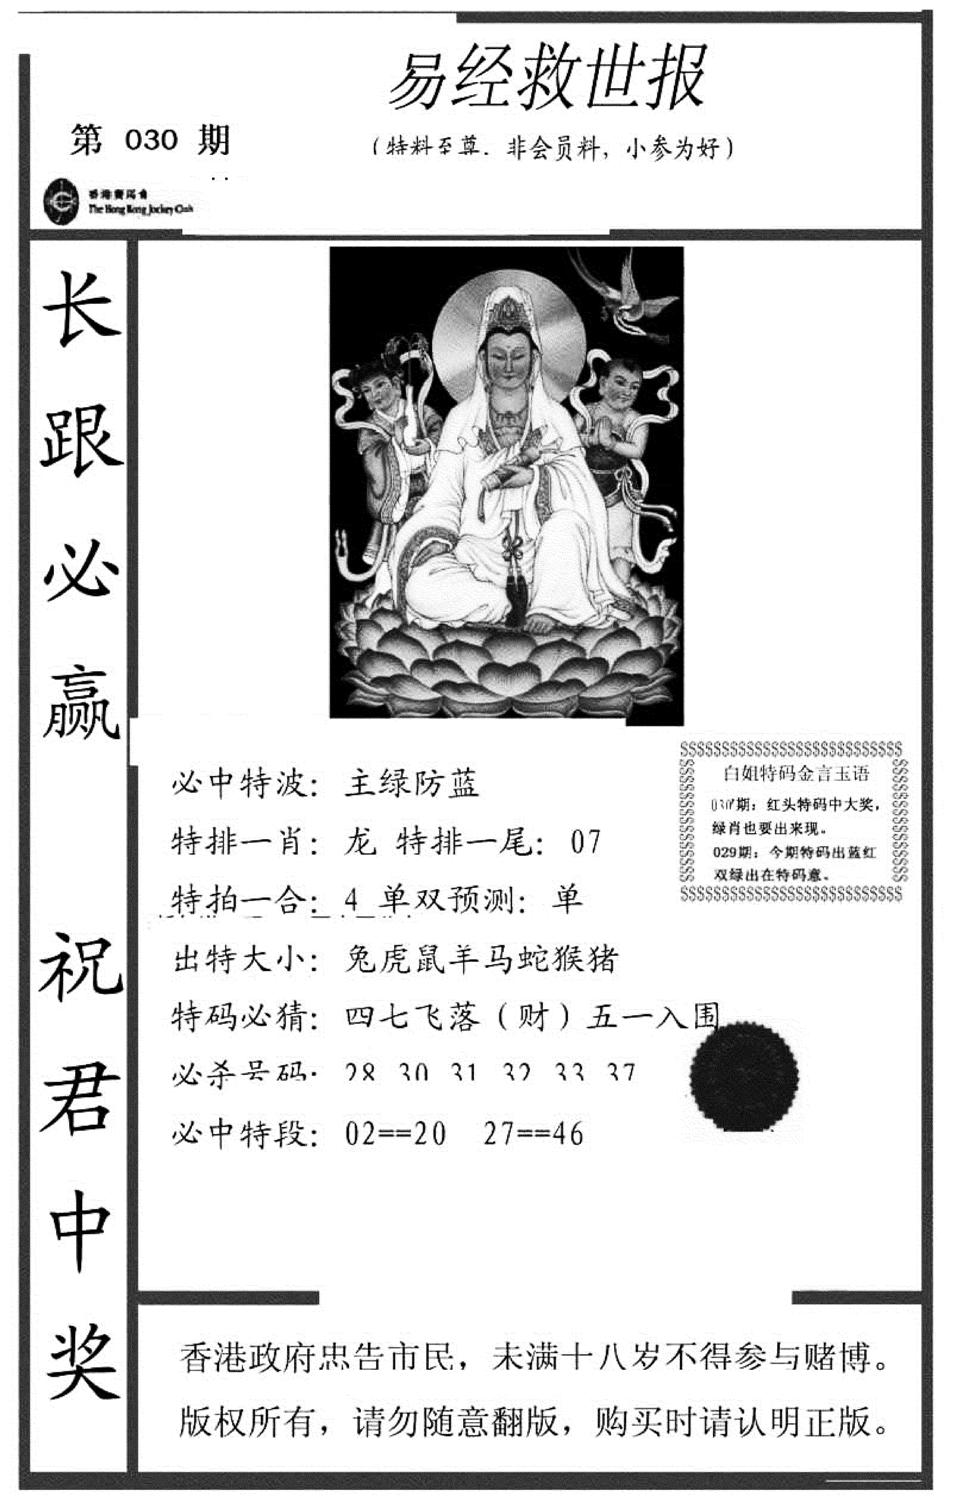 易经救世报
第 030 期
（特料至尊，非会员料，小参为好）
香港賽馬會
The Hong Kong Jockey Club
长跟必赢 祝君中奖
必中特波：主绿防蓝
特排一肖：龙 特排一尾：07
特拍一合：4 单双预测：单
出特大小：兔虎鼠羊马蛇猴猪
特码必猜：四七飞落（财）五一入围
必杀号码：28 30 31 32 33 37
必中特段：02==20 27==46
$$$$$$$$$$$$$$$$$$$$$$$$$$$
白姐特码金言玉语
030期：红头特码中大奖，
绿肖也要出来现。
029期：今期特码出蓝红
双绿出在特码意。
$$$$$$$$$$$$$$$$$$$$$$$$$$$
香港政府忠告市民，未满十八岁不得参与赌博。
版权所有，请勿随意翻版，购买时请认明正版。